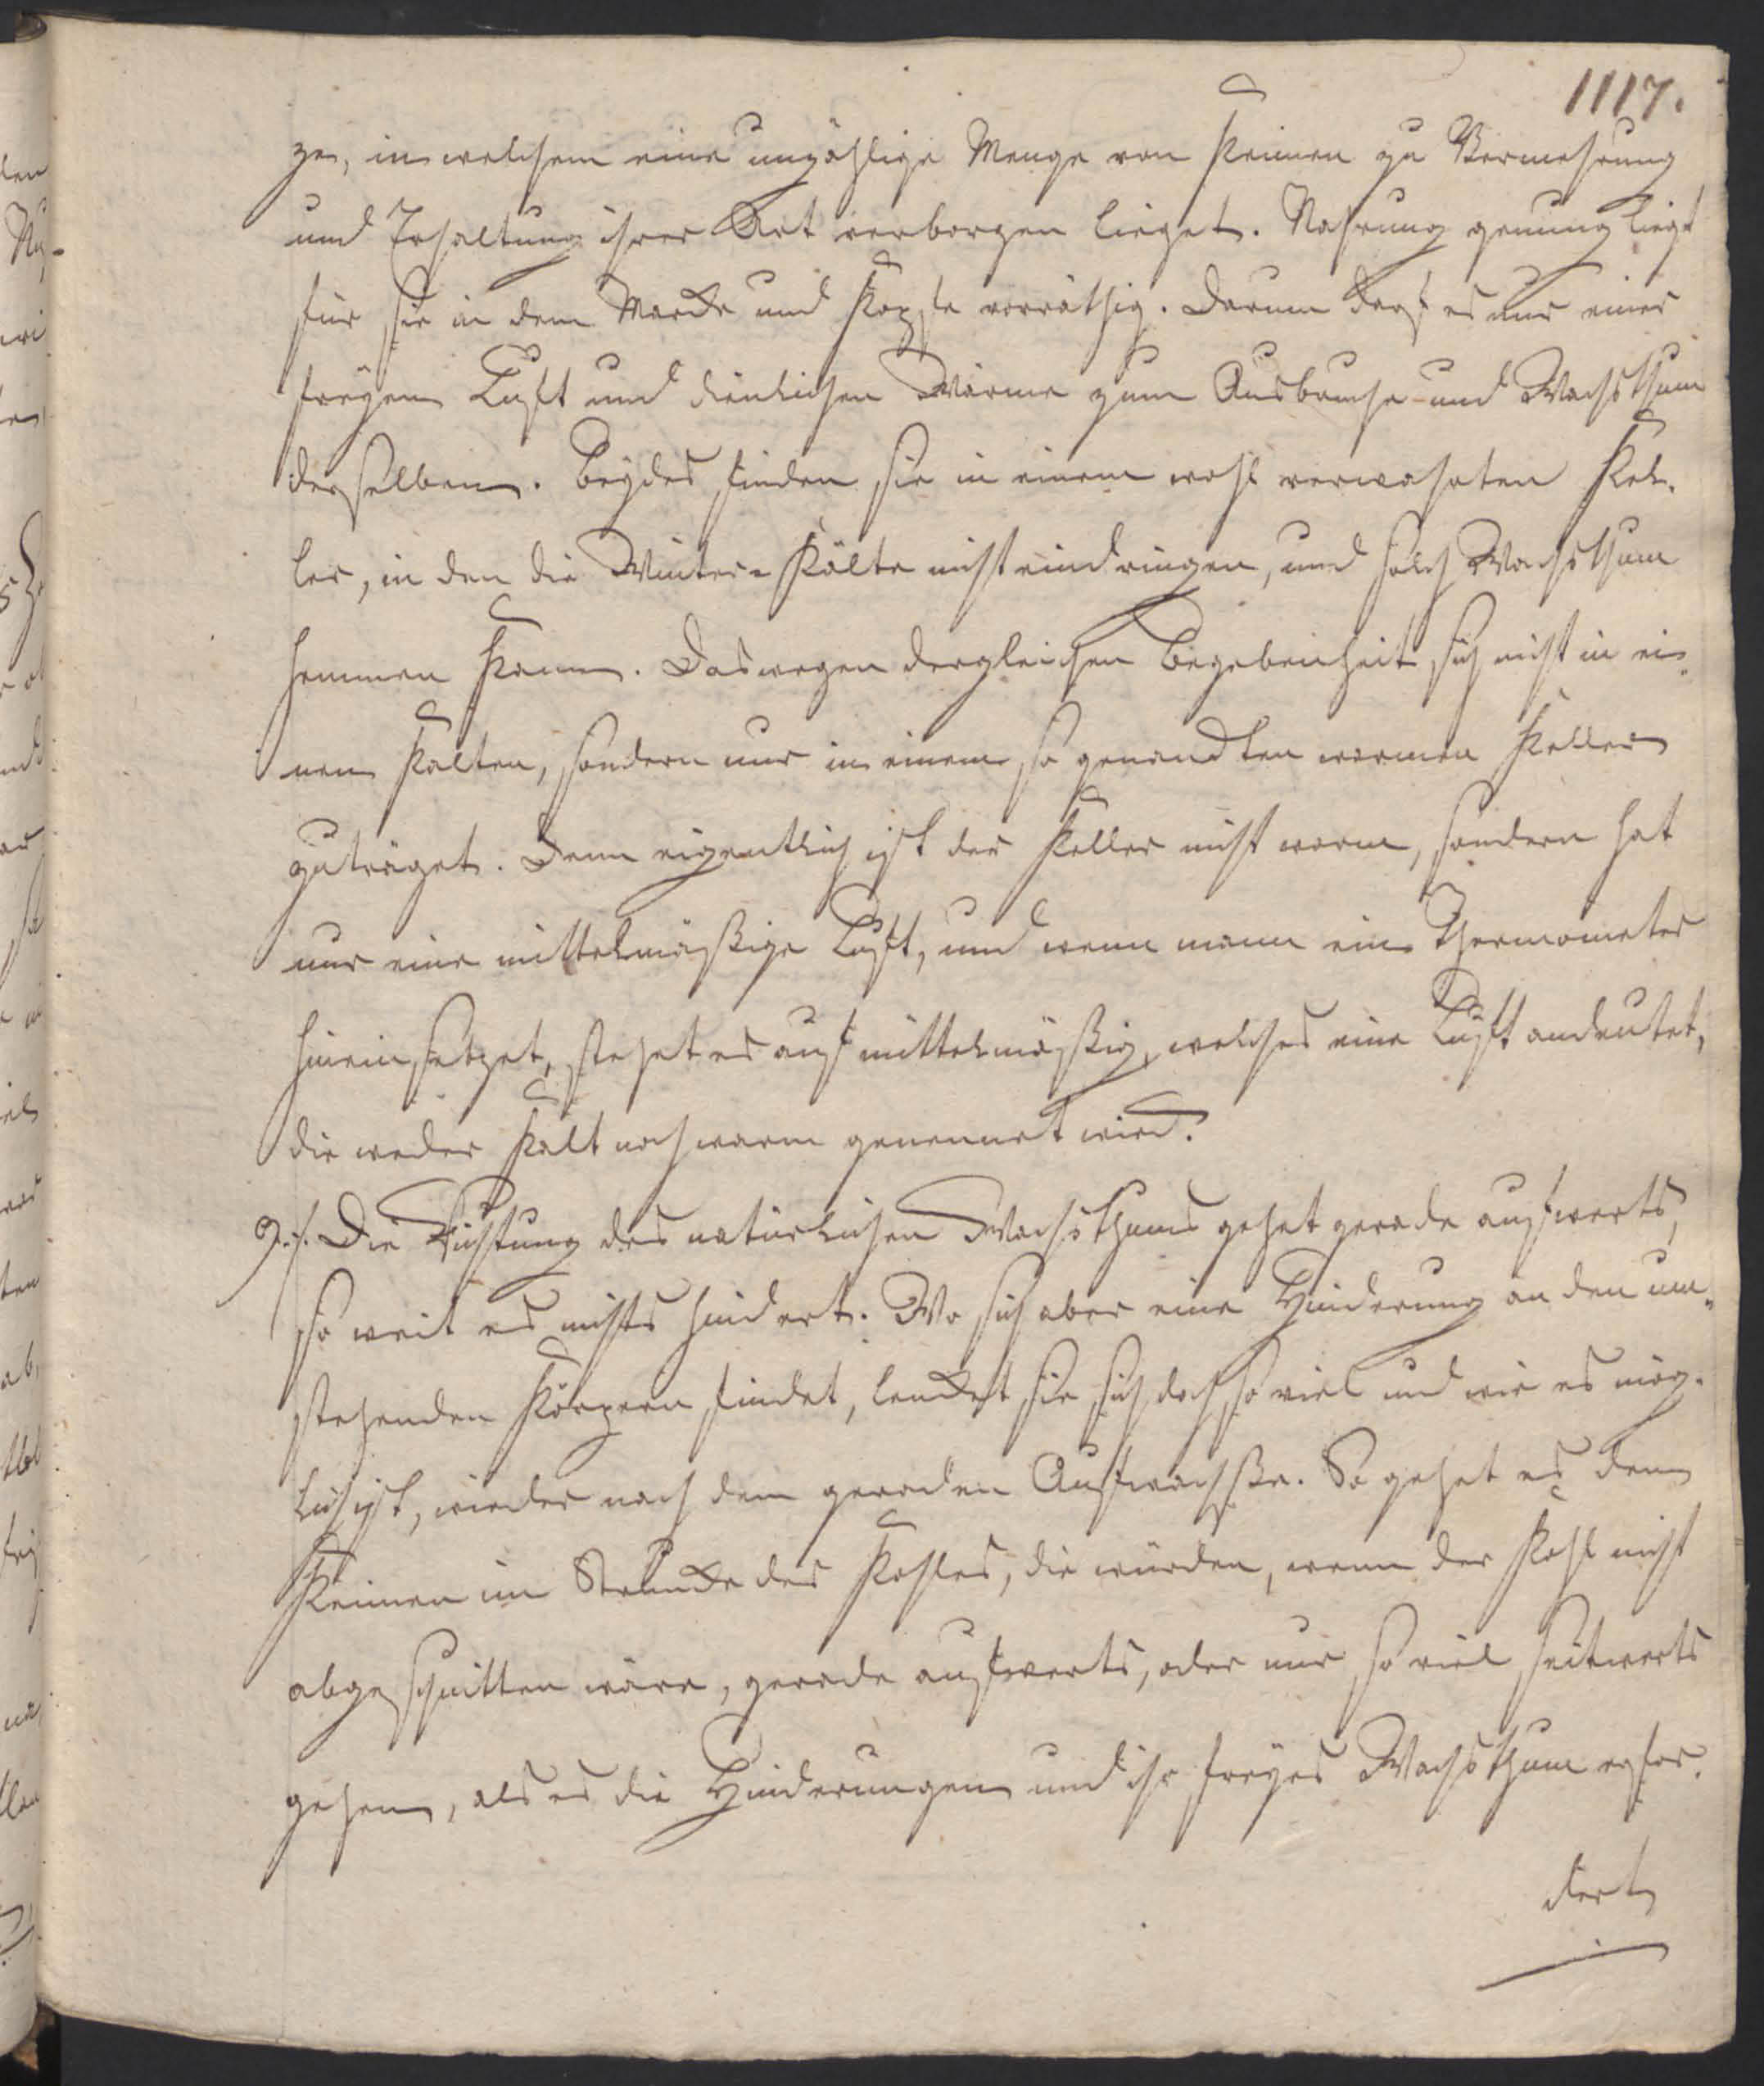 1117.
ze, in welchem eine unzählige Menge von Keimen zu Vermehrung
und Erhaltung ihrer Art verborgen lieget. Nahrung genung liegt
für sie in dem Marcke und Kopfe vorräthig. Darum darf es nur einer
freÿen Luft und dienlichen Wärme zum Ausbruche und Wachsthum
derselben. Beÿdes finden sie in einem wohl verwahrten Kel-
ler, in den die Winter-Kälte nicht eindringen, und solch Wachsthum
hemmen kann. Daswegen dergleichen Begebenheit sich nicht in ei-
nem kalten, sondern nur in einem so genandten warmen Keller
zuträget. Denn eigentlich ist der Keller nicht warm, sondern hat
nur eine mittelmäßige Luft, und wenn mann ein Thermometer
hinein setzet, stehet es auf mittelmäßig, welches eine Luft andeutet,
die weder kalt noch warm genennet wird.
9.) Die Richtung des natürlichen Wachsthums gehet gerade aufwerts,
so weit es nichts hindert. Wo sich aber eine Hinderung an den um-
stehenden Körpern findet, lencket sie sich doch so viel und wie es mög-
lich ist, wieder nach dem geraden Aufwachße. So gehet es den
Keimen im Struncke des Kohles, die würden, wenn der Kohl nicht
abgeschnitten wäre, gerade aufwerts, oder nur so viel seitwerts
gehen, als es die Hinderungen und ihr freÿes Wachsthum erfor-
dert